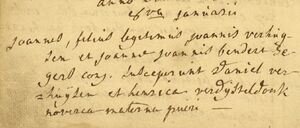 anno
6ta januarii
joannes, filius legitimus joannis verhuij
sen et joannæ joannis benders de
gers conj. susceperunt daniel ver
huijsen et henrica verdijsseldonk
noverca materna pueri —